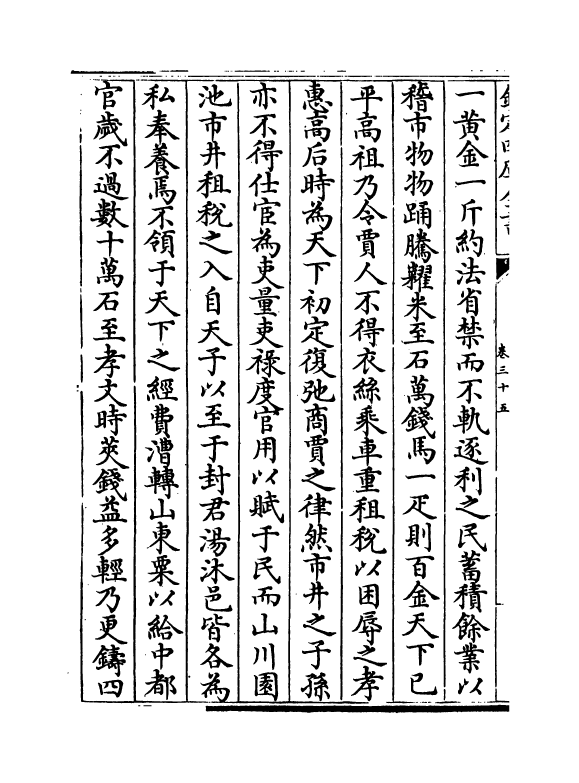 卷三十五
一黄金一斤約法省禁而不軌逐利之民蓄積餘業以
稽市物物踊騰糶米至石萬錢馬一疋則百金天下已
平高祖乃令賈人不得衣絲乗車重租稅以困辱之孝
惠高后時為天下初定復弛商賈之律然市井之子孫
亦不得仕宦為吏量吏禄度官用以賦于民而山川園
池市井租稅之入自天子以至于封君湯沐邑皆各為
私奉養焉不領于天下之經費漕轉山東粟以給中都
官歲不過數十萬石至孝文時莢錢益多輕乃更鑄四